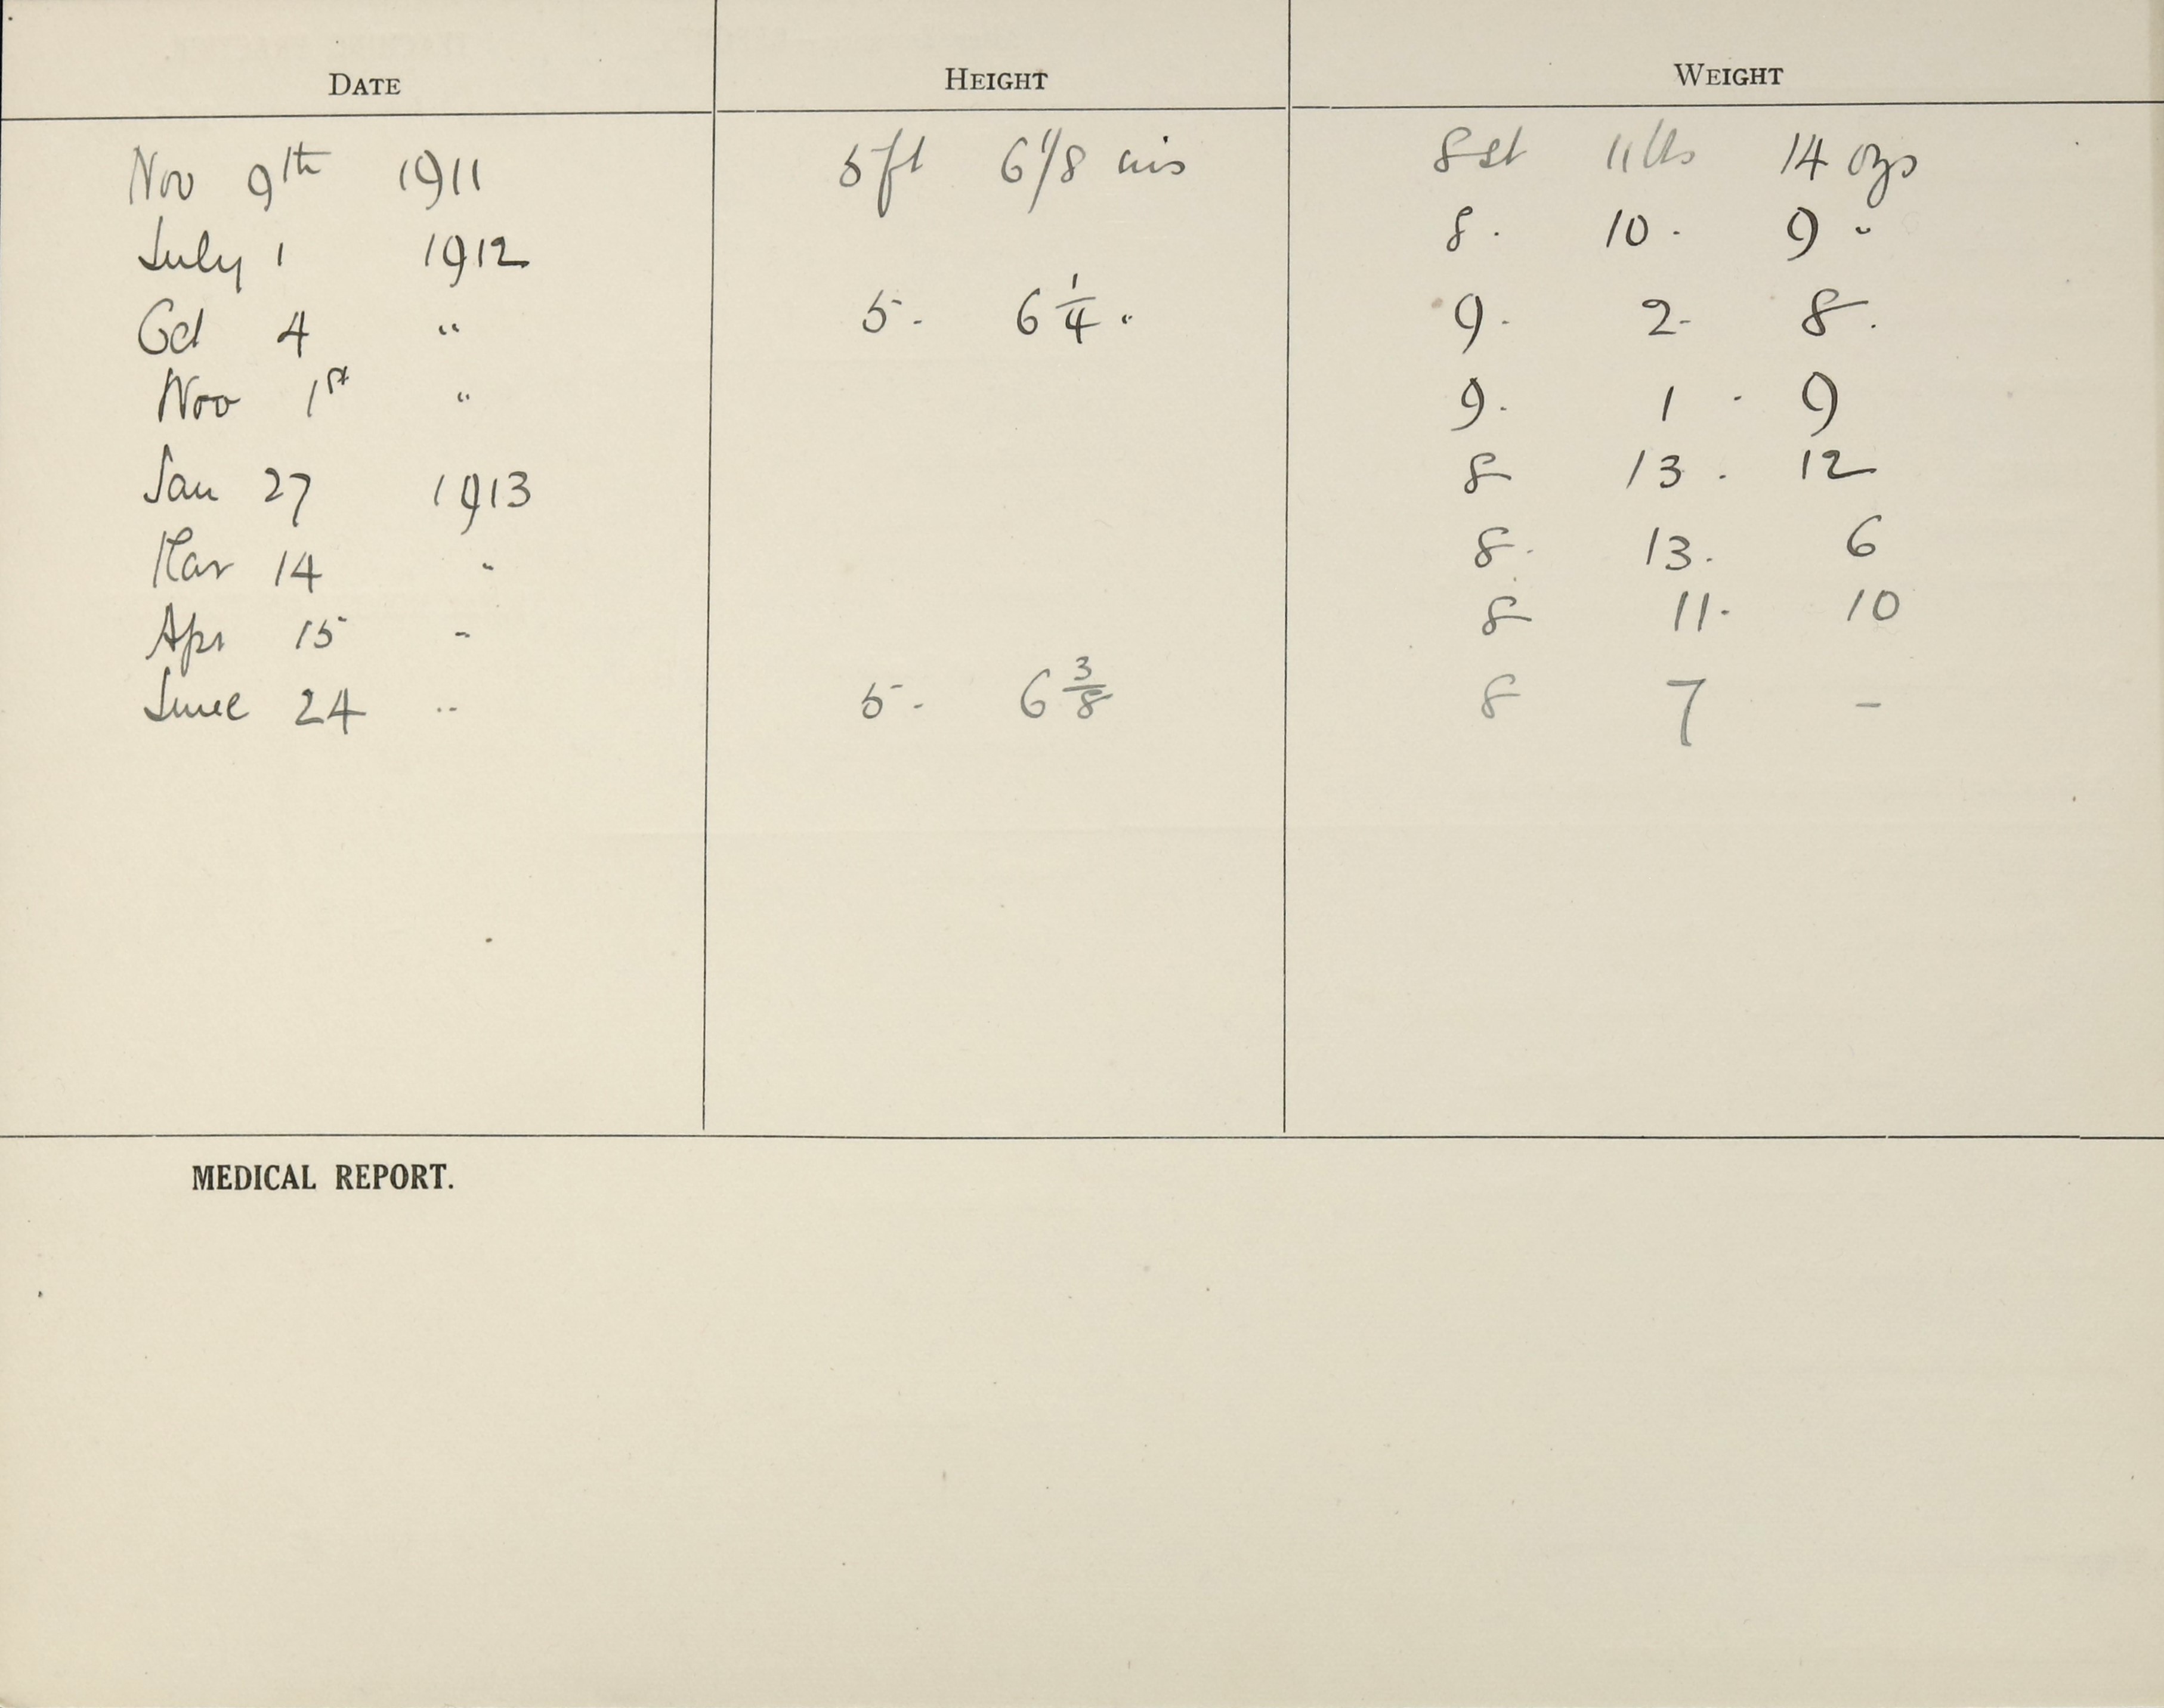 DATE HEIGHT WEIGHT
Nov 9th 1911 5ft 6 1/8 ins 8st 11lbs 14 ozs
July 1 1912 8. 10. 9 "
Oct 4 " 5. 6 1/4 " 9. 2. 8.
Nov 1st " 9. 1. 9
Jan 27 1913 8 13. 12
Mar 14 " 8. 13. 6
Apr 15 " 8 11. 10
June 24 " 5. 6 3/8 8 7 -
MEDICAL REPORT.